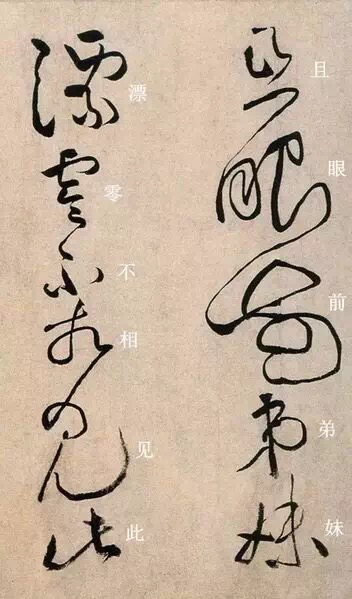 且眼前弟妹
漂零不相见此